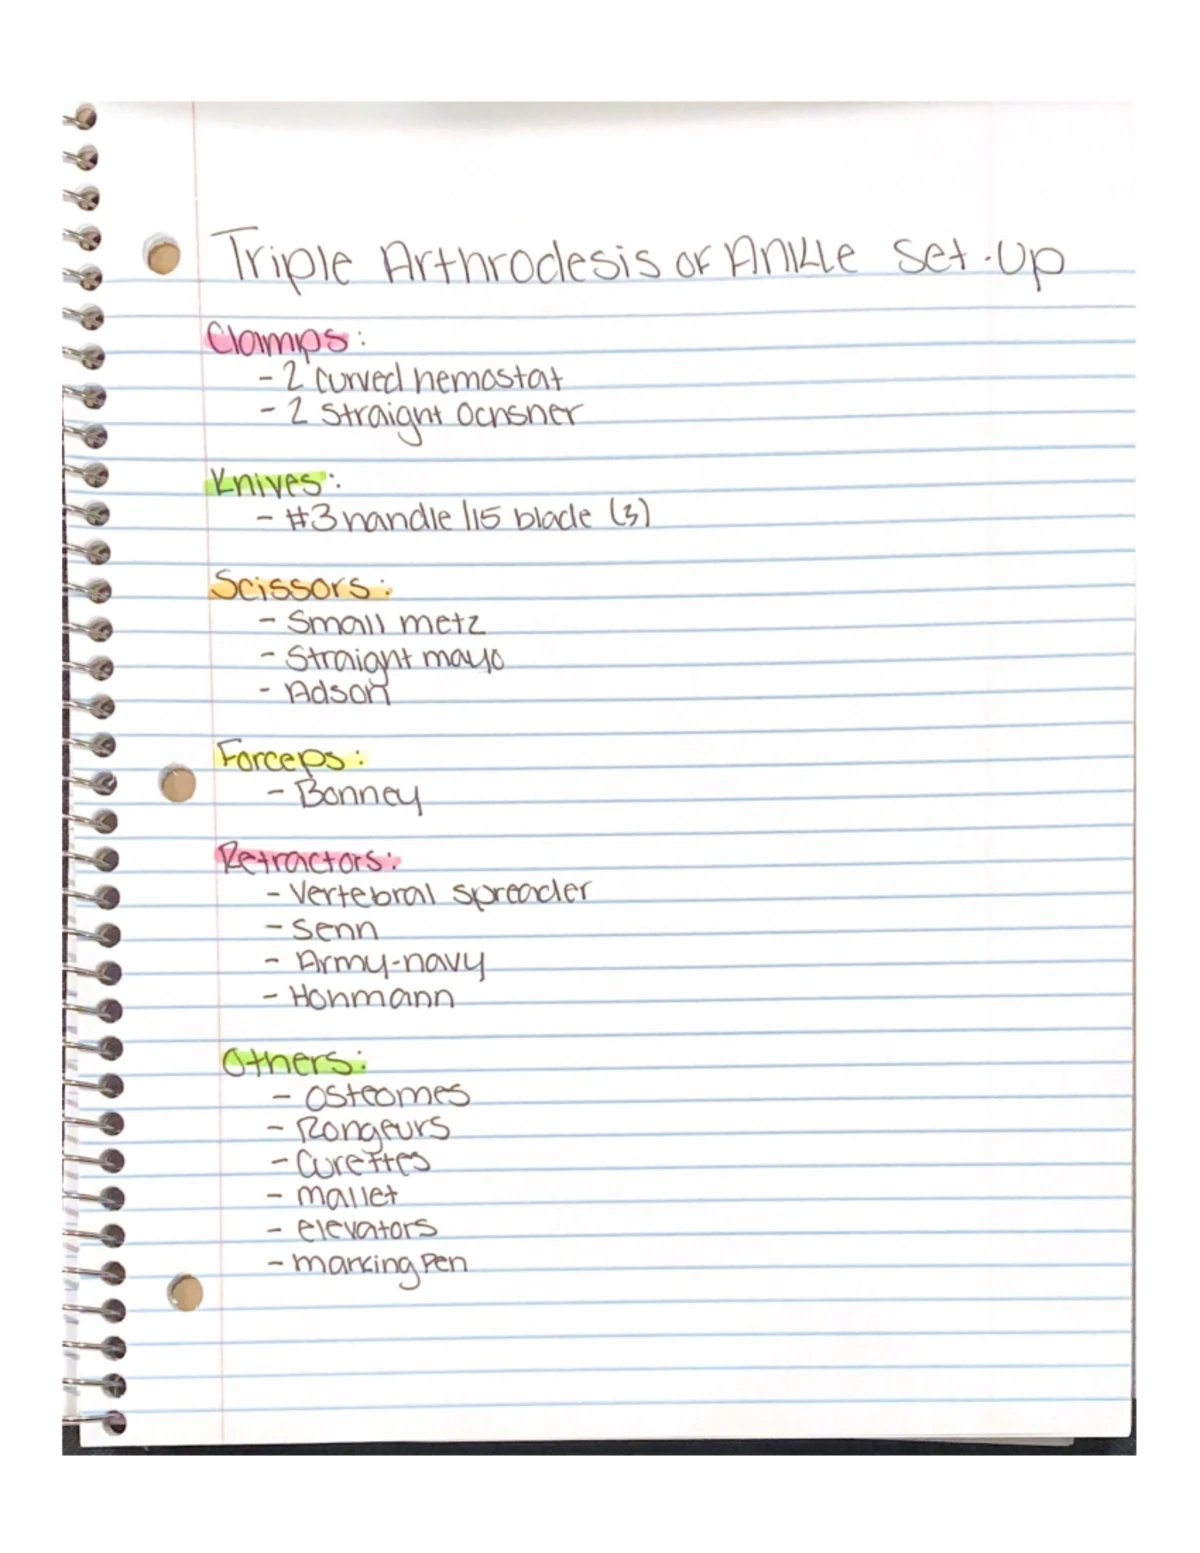 Triple Arthrodesis of Ankle Set-Up
Clamps:
- 2 curved hemostat
- 2 Straight Ochsner
Knives:
- #3 handle /15 blade (3)
Scissors:
- Small metz
- Straight mayo
- Adson
Forceps:
- Bonney
Retractors:
- Vertebral spreader
- Senn
- Army-navy
- Hohmann
Others:
- Osteomes
- Rongeurs
- Curettes
- mallet
- elevators
- marking pen